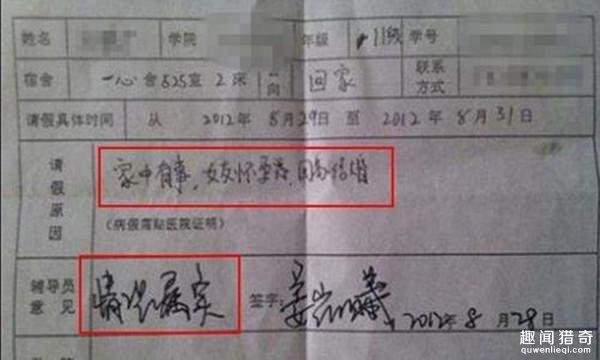 姓名 学院 年级 11级 学号
宿舍 一心舍525室2床 向 回家 联系方式
请假具体时间 从 2012年8月29日 至 2012年8月31日
请假原因 家中有事,女友怀孕,回家结婚
(病假需贴医院证明)
辅导员意见 情况属实 签字: 2012年8月29日
趣闻猎奇
quwenlieqi.com